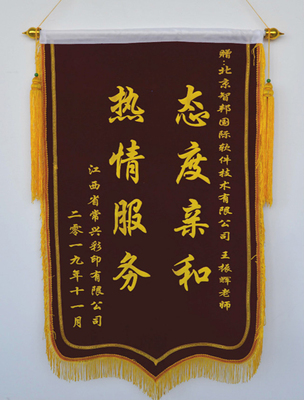 赠:北京智邦国际软件技术有限公司 王振辉老师
态度亲和
热情服务
江西省常兴彩印有限公司
二零一九年十一月